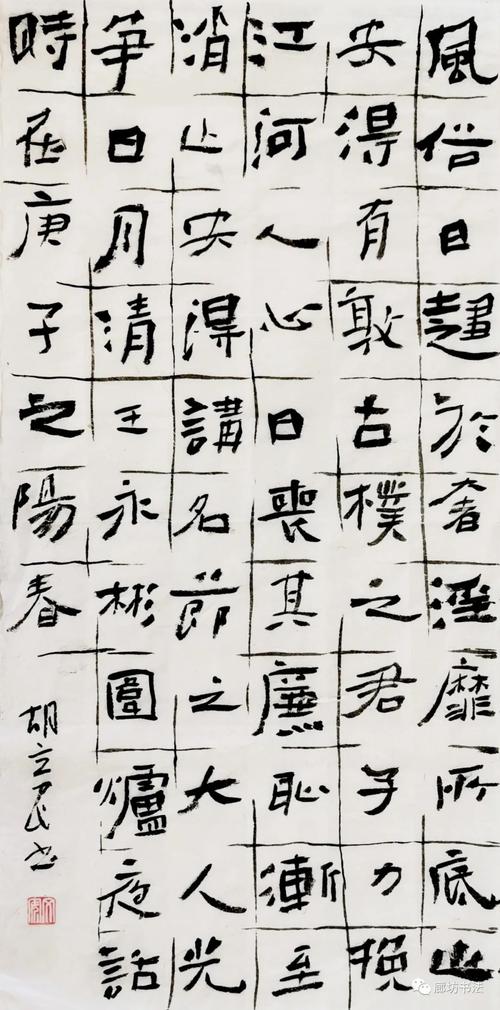 風俗日趨於奢淫靡所底止
安得有敦古樸之君子力挽
江河人心日喪其廉恥漸至
消亡安得講名節之大人光
爭日月清王永彬圍爐夜話
時在庚子之陽春
胡立民书
廊坊书法